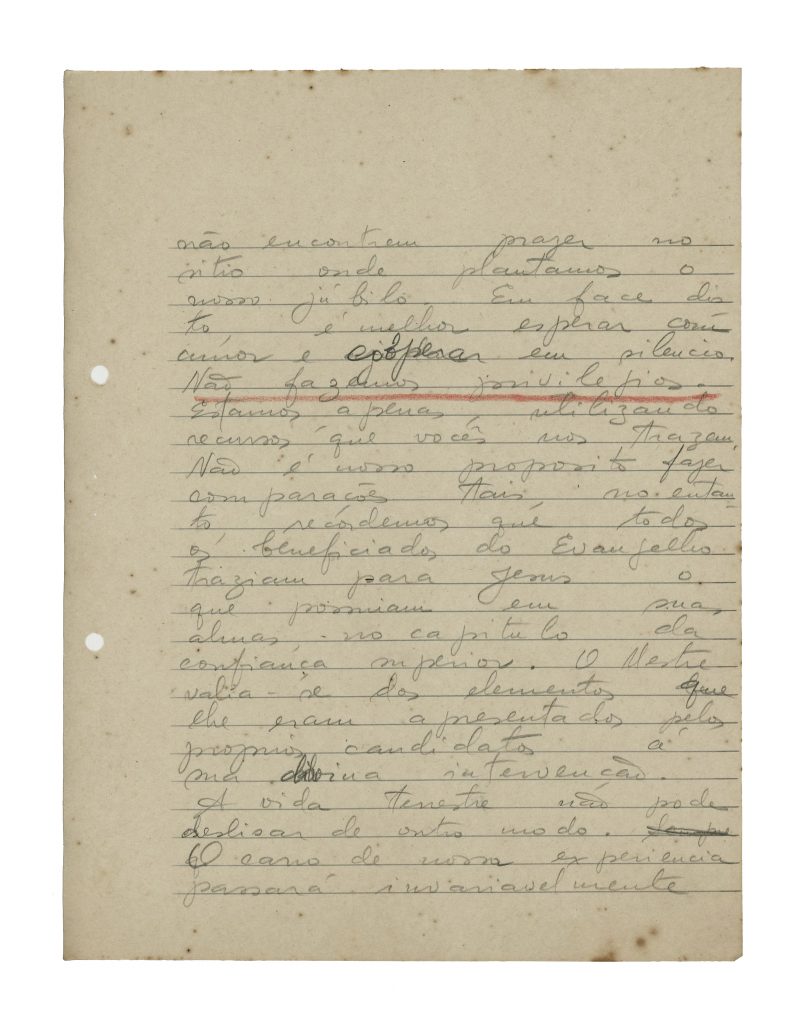 não encontrem prazer no
sitio onde plantamos o
nosso júbilo. Em face dis
to é melhor esperar com
amor e cooperar em silencio.
Não fazemos privilegios.
Estamos apenas utilizando
recursos que vocês nos trazem.
Não é nosso proposito fazer
comparações tais no entan
to, recórdemos que todos
os beneficiados do Evangelho
traziam para Jesus o
que possuiam em suas
almas no capitulo da
confiança superior. O Mestre
valia-se dos elementos que
lhe eram apresentados pelos
proprios candidatos á
sua divina intervenção.
A vida terrestre não pode
deslisar de outro modo. Sempre
O carro de nossa experiencia
passará invariavelmente